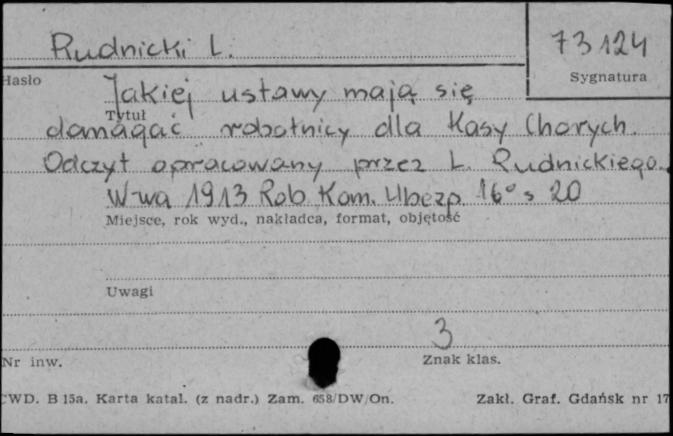 Rudnicki L.
73124
Hasło
Sygnatura
Jakiej ustawy mają się
Tytuł
domagać robotnicy dla Kasy Chorych.
Odczyt opracowany przez L. Rudnickiego.
W-wa 1913 Rob. Kom. Ubezp. 16° s 20
Miejsce, rok wyd., nakładca, format, objętość
Uwagi
3
Nr inw.
Znak klas.
CWD. B 15a. Karta katal. (z nadr.) Zam. 658/DW/On.
Zakł. Graf. Gdańsk nr 17